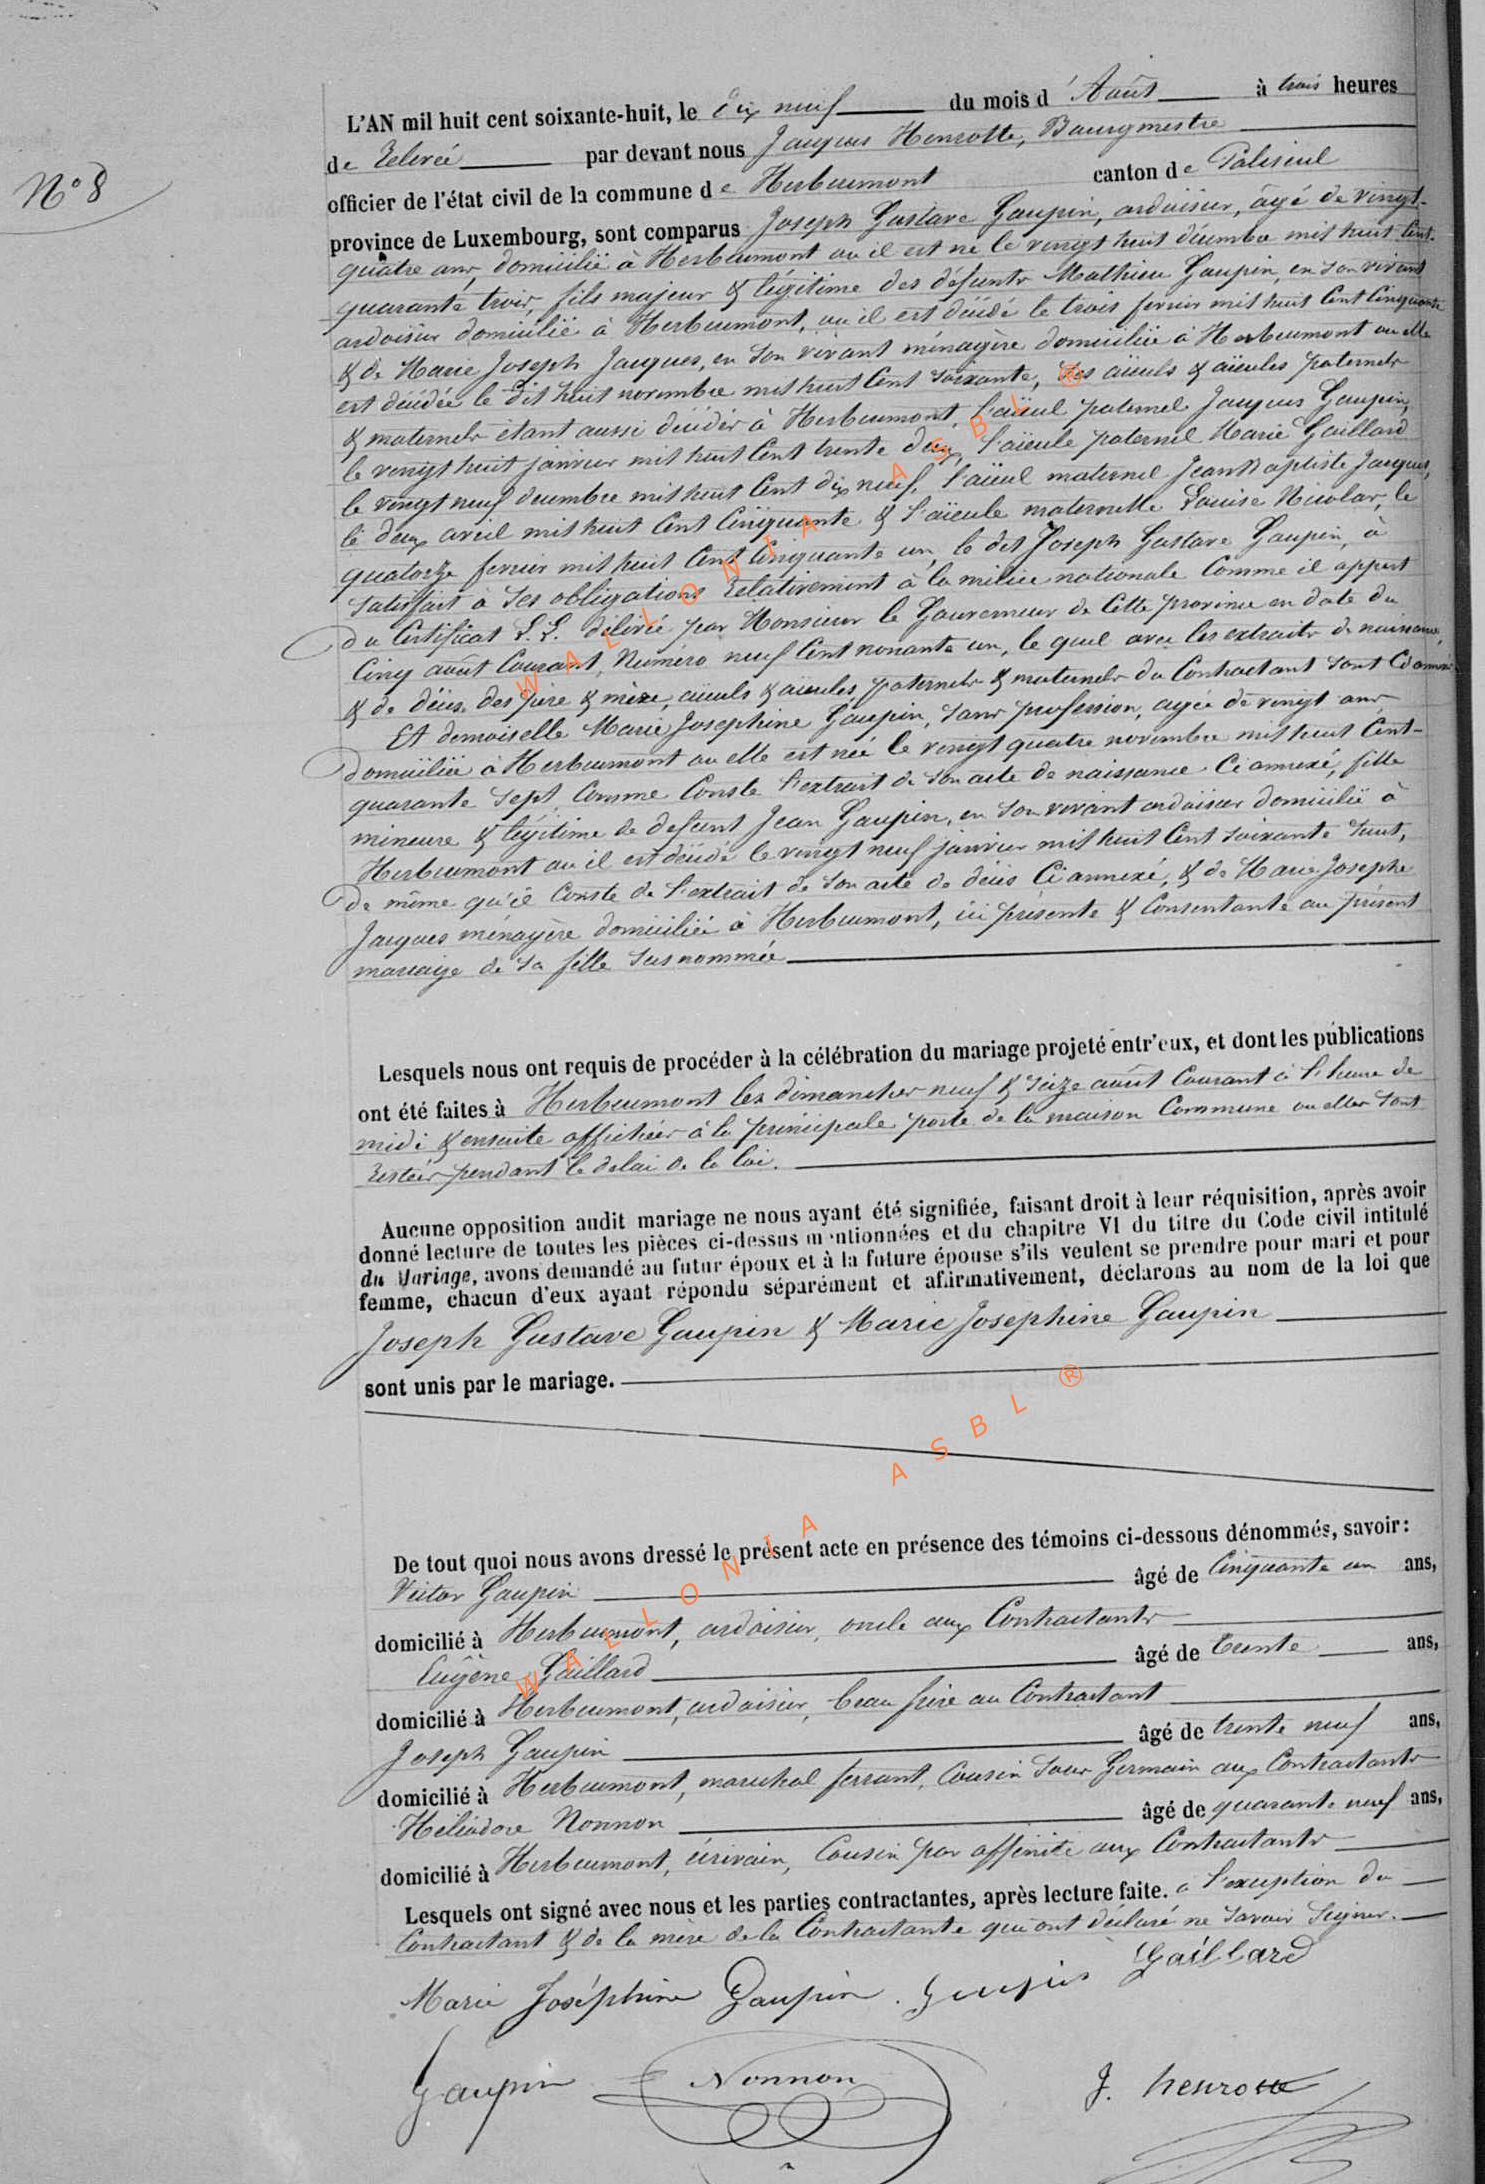 N° 8
L'AN mil huit cent soixante-huit, le dix neuf du mois d'Août à trois heures
de Relevée par devant nous Jacques Henrotte, Bourgmestre
officier de l'état civil de la commune de Herbeumont canton de Paliseul
province de Luxembourg, sont comparus Joseph Gustave Gaupin, ardoisier, âgé de vingt-
quatre ans, domicilié à Herbeumont où il est né le vingt huit décembre mil huit Cent-
quarante trois, fils majeur & légitime des défunts Mathieu Gaupin, en son vivant
ardoisier domicilié à Herbeumont, où il est décédé le trois février mil huit Cent Cinquante
& de Marie Joseph Jacques, en son vivant ménagère domiciliée à Herbeumont où elle
est décédée le dit huit novembre mil huit Cent soixante, ses aïeuls & aïeules paternels
& maternels étant aussi décédés à Herbeumont, l'aïeul paternel Jacques Gaupin,
le vingt huit janvier mil huit Cent trente deux, l'aïeule paternel Marie Gaillard
le vingt neuf décembre mil huit Cent dix neuf, l'aïeul maternel Jean Baptiste Jacques,
le deux avril mil huit Cent Cinquante & l'aïeule maternelle Louise Nicolas, le
quatorze février mil huit Cent Cinquante un, le dit Joseph Gustave Gaupin, à
satisfait à ses obligations Relativement à la milice nationale Comme il appert
du Certificat L.L. délivré par Monsieur le Gouverneur de Cette province en date du
Cinq août Courant, Numéro neuf Cent nonante un, le quel avec les extraits de naissance,
& de décès des père & mère, aïeuls & aïeules, paternels & maternels du Contractant sont Ci annexés
Et demoiselle Marie Josephine Gaupin, sans profession, agée de vingt ans
domiciliée à Herbeumont où elle est née le vingt quatre novembre mil huit Cent-
quarante sept, Comme Conste l'extrait de son acte de naissance Ci annexé, fille
mineure & légitime de defunt Jean Gaupin, en son vivant ardoisier domicilié à
Herbeumont où il est décédé le vingt neuf janvier mil huit Cent soixante huit,
de même qu'il Conste de l'extrait de son acte de décès Ci annexé, & de Marie Josephe
Jacques ménagère domiciliée à Herbeumont, ici présente & Consentante au présent
mariage de sa fille susnommée
Lesquels nous ont requis de procéder à la célébration du mariage projeté entr'eux, et dont les publications
ont été faites à Herbeumont les dimanches neuf & seize août Courant à l'heure de
midi & ensuite affichées à la principale porte de la maison Commune où elles sont
restées pendant le delai de la loi.
Aucune opposition audit mariage ne nous ayant été signifiée, faisant droit à leur réquisition, après avoir
donné lecture de toutes les pièces ci-dessus mentionnées et du chapitre VI du titre du Code civil intitulé
du Mariage, avons demandé au futur époux et à la future épouse s'ils veulent se prendre pour mari et pour
femme, chacun d'eux ayant répondu séparément et affirmativement, déclarons au nom de la loi que
Joseph Gustave Gaupin & Marie Josephine Gaupin
sont unis par le mariage.
De tout quoi nous avons dressé le présent acte en présence des témoins ci-dessous dénommés, savoir:
Victor Gaupin âgé de Cinquante un ans,
domicilié à Herbeumont, ardoisier, oncle aux Contractants
Eugène Gaillard âgé de trente ans,
domicilié à Herbeumont, ardoisier, beau frère au Contractant
Joseph Gaupin âgé de trente neuf ans,
domicilié à Herbeumont, maréchal ferrant, Cousin sous Germain aux Contractants
Héliodore Nonnon âgé de quarante neuf ans,
domicilié à Herbeumont, écrivain, Cousin par affinité aux Contractants
Lesquels ont signé avec nous et les parties contractantes, après lecture faite. à l'exception du
Contractant & de la mère de la Contractante qui ont déclaré ne savoir Signer.
Marie Joséphine Gaupin. Gaupin Gaillard
Gaupin Nonnon J. henrotte
WALLONIA ASBL ®
WALLONIA ASBL ®